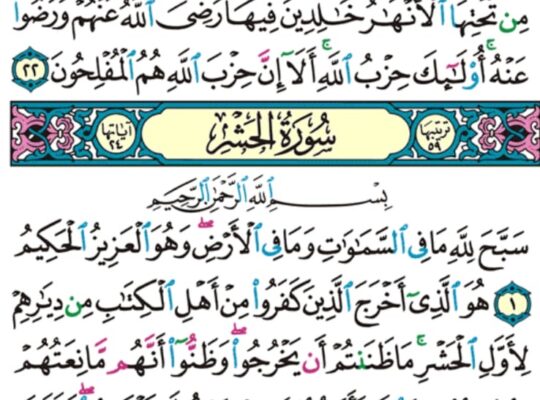 مِن تَحْتِهَا ٱلْأَنْهَٰرُ خَٰلِدِينَ فِيهَا رَضِىَ ٱللَّهُ عَنْهُمْ وَرَضُوا۟
عَنْهُ ۚ أُو۟لَٰٓئِكَ حِزْبُ ٱللَّهِ ۚ أَلَآ إِنَّ حِزْبَ ٱللَّهِ هُمُ ٱلْمُفْلِحُونَ ٢٢
ترتيبها ٥٩ سُورَةُ الحَشْرِ آياتها ٢٤
بِسْمِ ٱللَّهِ ٱلرَّحْمَٰنِ ٱلرَّحِيمِ
سَبَّحَ لِلَّهِ مَا فِى ٱلسَّمَٰوَٰتِ وَمَا فِى ٱلْأَرْضِ ۖ وَهُوَ ٱلْعَزِيزُ ٱلْحَكِيمُ
١ هُوَ ٱلَّذِىٓ أَخْرَجَ ٱلَّذِينَ كَفَرُوا۟ مِنْ أَهْلِ ٱلْكِتَٰبِ مِن دِيَٰرِهِمْ
لِأَوَّلِ ٱلْحَشْرِ ۚ مَا ظَنَنتُمْ أَن يَخْرُجُوا۟ ۖ وَظَنُّوٓا۟ أَنَّهُم مَّانِعَتُهُمْ